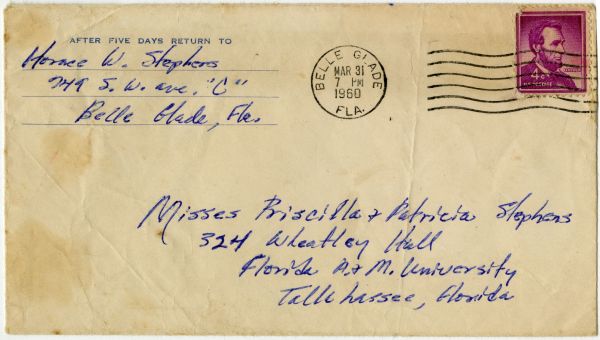 AFTER FIVE DAYS RETURN TO
Horace W. Stephens
749 S. W. ave. "C"
Belle Glade, Fla.
BELLE GLADE
MAR 31
7 PM
1960
FLA.
4¢
Misses Priscilla & Patricia Stephens
324 Wheatley Hall
Florida A. & M. University
Tallahassee, Florida